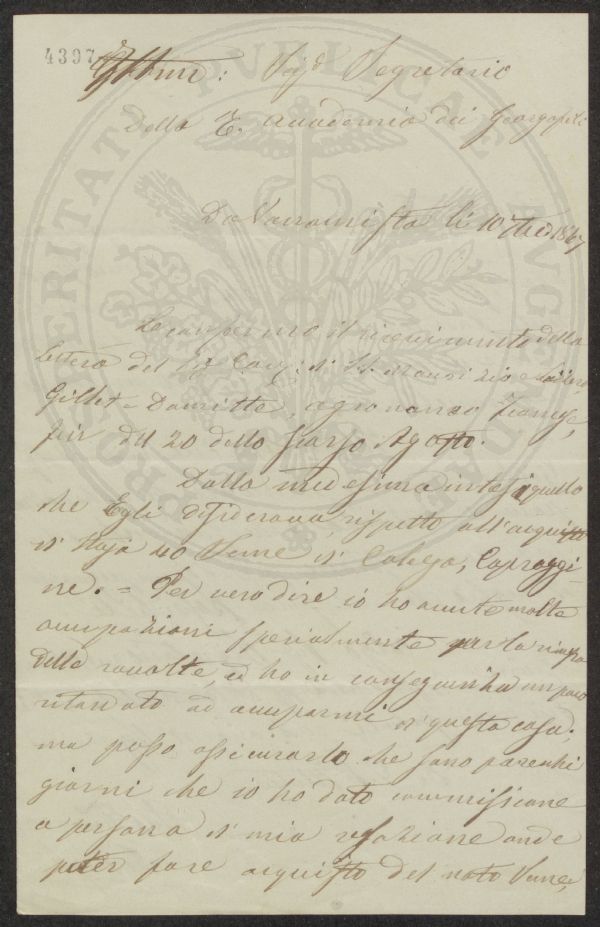 4397
Segretario
Della R. Accademia dei Georgofili
Da Varramista li 10 7bre 1867
Le confermo il ricevimento della
Lettera del Sig. Cav: di St. Maurizio e
Gillet-Damitte, agronomo
fin del 20 dello scorso Agosto.
Dalla medesima intesi quello
che Egli desiderava rispetto all'acquisto
di Staja 40 Seme di Galega, Capraggi-
ne. = Per vero dire io ho avute molte
occupazioni specialmente per la
delle raccolte, ed ho in conseguenza un poco
ritardato ad occuparmi di questa cosa:
ma posso assicurarlo che sono parecchi
giorni che io ho dato commissione
a persona di mia relazione onde
poter fare acquisto del noto Seme,
PROSPERITATI PVBLICAE AVGENDAE